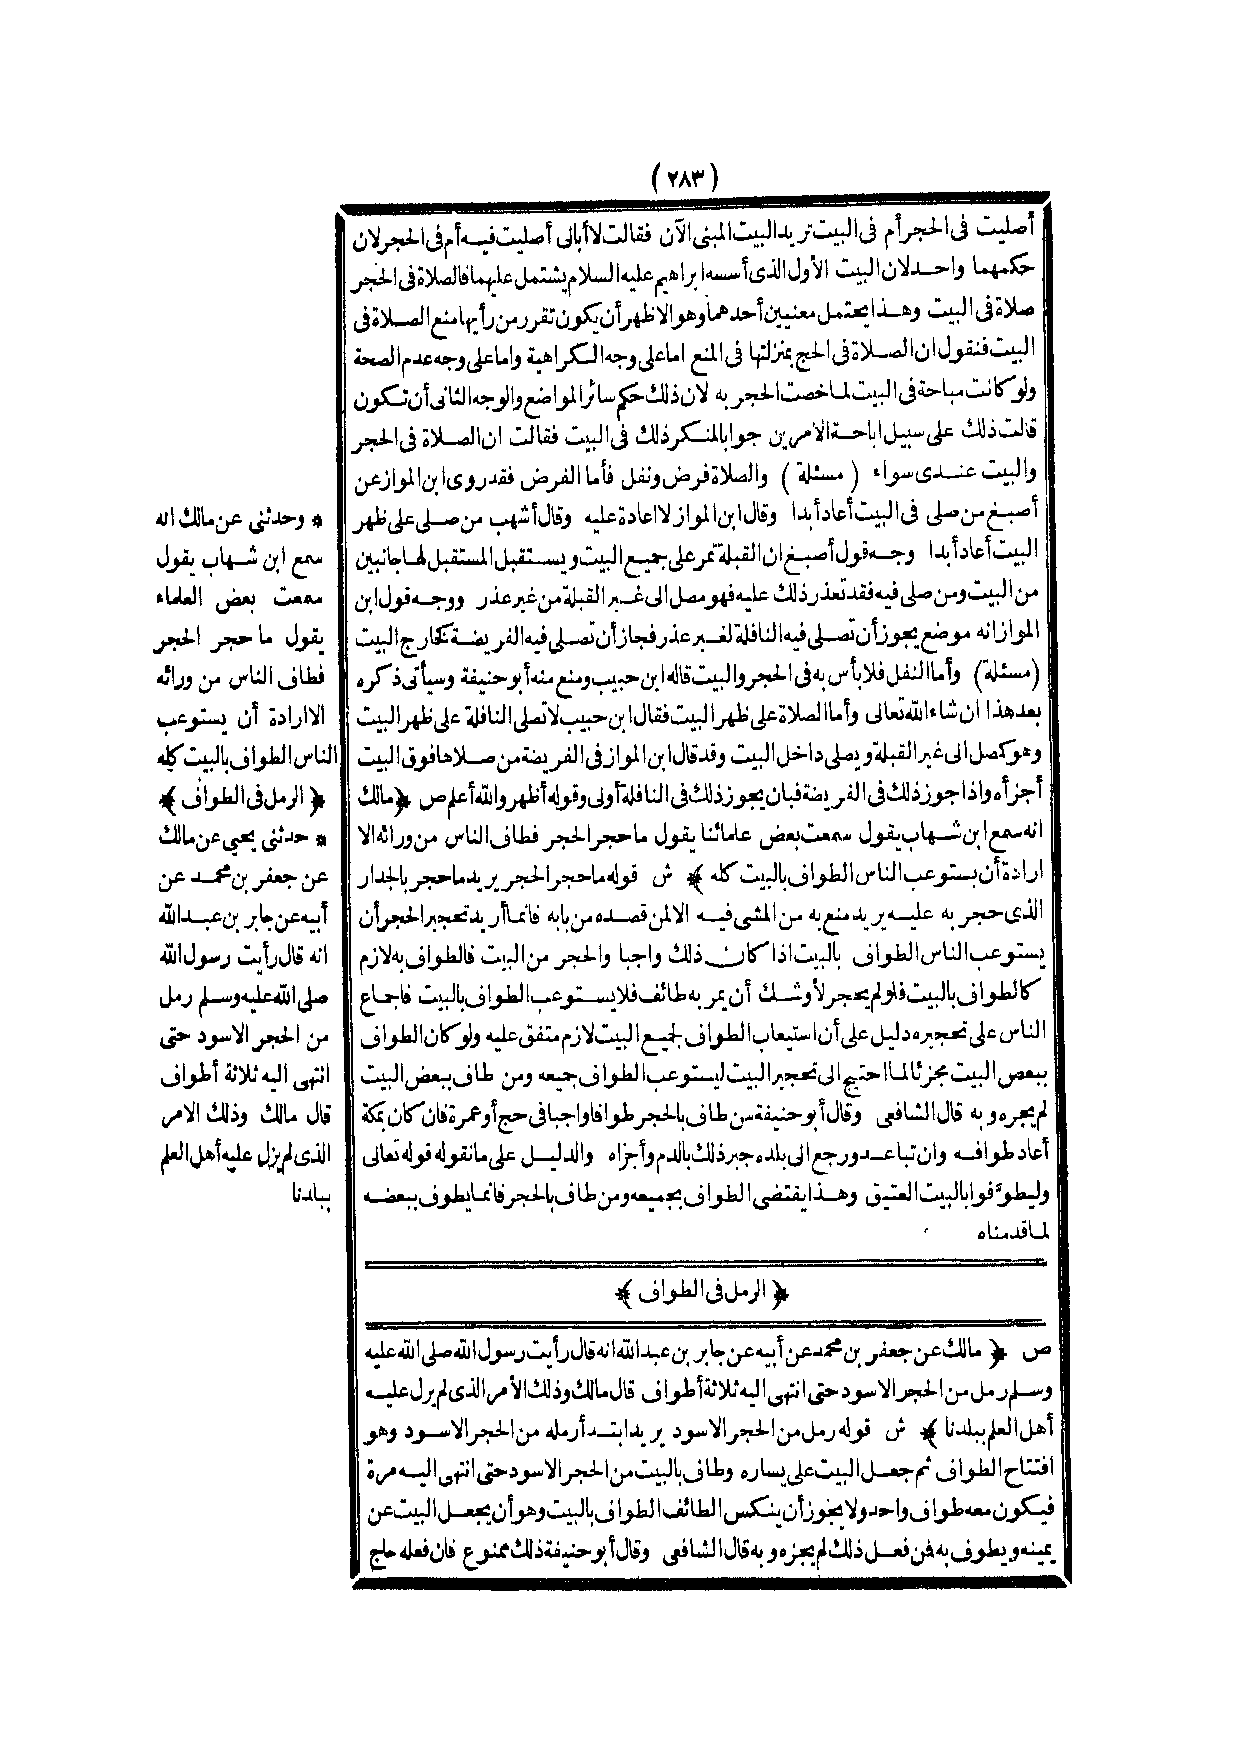 (٢٨٣)
أصليت فى الحجر أم فى البيت تريد البيت المبنى الآن فقالت لا أبالى أصليت فيه أم فى الحجر لان
حكمهما واحد لان البيت الأول الذى أسسه ابراهيم عليه السلام يشتمل عليهما فالصلاة فى الحجر
صلاة فى البيت وهذا يحتمل معنيين أحدهما وهو الاظهر أن يكون تقرر من رأيها منع الصلاة فى
البيت فنقول ان الصلاة فى الحج بمنزلتها فى المنع اما على وجه الكراهية واما على وجه عدم الصحة
ولو كانت مباحة فى البيت لما خصت الحجر به لان ذلك حكم سائر المواضع والوجه الثانى أن تكون
قالت ذلك على سبيل اباحة الامرين جوابا لمنكر ذلك فى البيت فقالت ان الصلاة فى الحجر
والبيت عندى سواء (مسئلة) والصلاة فرض ونفل فأما الفرض فقد روى ابن المواز عن
أصبغ من صلى فى البيت أعاد أبدا وقال ابن المواز لا اعادة عليه وقال أشهب من صلى على ظهر
البيت أعاد أبدا وجه قول أصبغ ان القبلة تمر على جميع البيت ويستقبل المستقبل لها جانبين
من البيت ومن صلى فيه فقد تعذر ذلك عليه فهو مصل الى غير القبلة من غير عذر ووجه قول ابن
المواز انه موضع يجوز أن تصلى فيه النافلة لغير عذر فجاز أن تصلى فيه الفريضة كخارج البيت
(مسئلة) وأما النفل فلا بأس به فى الحجر والبيت قاله ابن حبيب ومنع منه أبو حنيفة وسيأتى ذكره
بعد هذا ان شاء الله تعالى وأما الصلاة على ظهر البيت فقال ابن حبيب لا تصلى النافلة على ظهر البيت
وهو كمصل الى غير القبلة ويصلى داخل البيت وقد قال ابن المواز فى الفريضة من صلاها فوق البيت
أجزأه واذا جوز ذلك فى الفريضة فبان يجوز ذلك فى النافلة أولى وقوله أظهر والله أعلم ص ﴿ مالك
انه سمع ابن شهاب يقول سمعت بعض علمائنا يقول ما حجر الحجر فطاف الناس من ورائه الا
ارادة أن يستوعب الناس الطواف بالبيت كله ﴾ ش قوله ما حجر الحجر يريد ما حجر بالجدار
الذى حجر به عليه يريد منع به من المشى فيه الا لمن قصده من بابه فانما أريد تحجير الحجر أن
يستوعب الناس الطواف بالبيت اذا كان ذلك واجبا والحجر من البيت فالطواف به لازم
كالطواف بالبيت فلو لم يحجر لأوشك أن يمر به طائف فلا يستوعب الطواف بالبيت فاجماع
الناس على تحجيره دليل على أن استيعاب الطواف لجميع البيت لازم متفق عليه ولو كان الطواف
ببعض البيت مجزئا لما احتيج الى تحجير البيت ليستوعب الطواف جميعه ومن طاف ببعض البيت
لم يجزه وبه قال الشافعى وقال أبو حنيفة من طاف بالحجر طوافا واجبا فى حج أو عمرة فان كان بمكة
أعاد طوافه وان تباعد ورجع الى بلده جبر ذلك بالدم وأجزاه والدليل على ما نقوله قوله تعالى
وليطوّفوا بالبيت العتيق وهذا يقتضى الطواف بجميعه ومن طاف بالحجر فانما يطوف ببعضه
لما قدمناه
﴿ الرمل فى الطواف ﴾
ص ﴿ مالك عن جعفر بن محمد عن أبيه عن جابر بن عبد الله انه قال رأيت رسول الله صلى الله عليه
وسلم رمل من الحجر الاسود حتى انتهى اليه ثلاثة أطواف قال مالك وذلك الأمر الذى لم يزل عليه
أهل العلم ببلدنا ﴾ ش قوله رمل من الحجر الاسود يريد ابتدأ رمله من الحجر الاسود وهو
افتتاح الطواف ثم جعل البيت على يساره وطاف بالبيت من الحجر الاسود حتى انتهى اليه مرة
فيكون معه طواف واحد ولا يجوز أن ينكس الطائف الطواف بالبيت وهو أن يجعل البيت عن
يمينه ويطوف به فمن فعل ذلك لم يجزه وبه قال الشافعى وقال أبو حنيفة ذلك ممنوع فان فعله حاج
* وحدثنى عن مالك انه
سمع ابن شهاب يقول
سمعت بعض العلماء
يقول ما حجر الحجر
فطاف الناس من ورائه
الا ارادة أن يستوعب
الناس الطواف بالبيت كله
﴿ الرمل فى الطواف ﴾
* حدثنى يحيى عن مالك
عن جعفر بن محمد عن
أبيه عن جابر بن عبد الله
انه قال رأيت رسول الله
صلى الله عليه وسلم رمل
من الحجر الاسود حتى
انتهى اليه ثلاثة أطواف
قال مالك وذلك الامر
الذى لم يزل عليه أهل العلم
ببلدنا